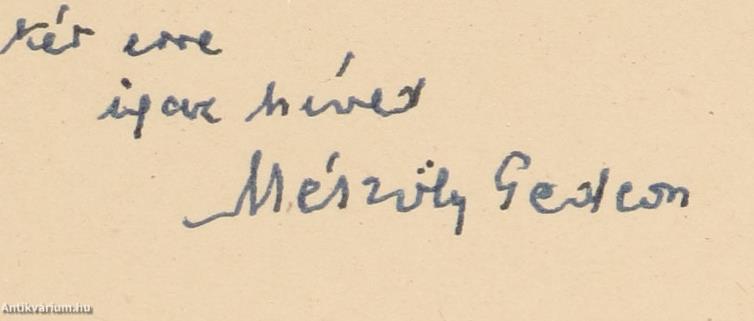 kér erre
igaz híved
Mészöly Gedeon
Antikvárium.hu